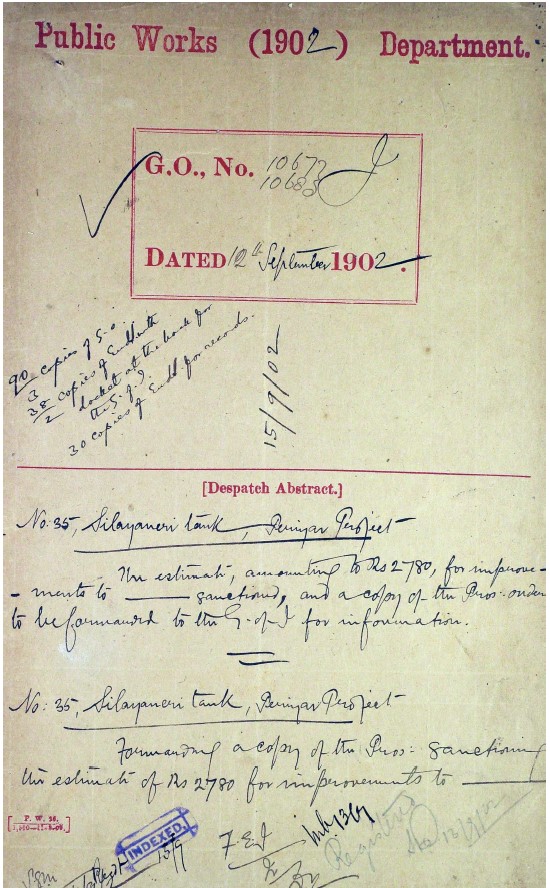 Public Works (1902) Department.
G.O., No. 10672 I
10683
DATED 12th September 1902.
90 copies of G.O.
3
38 copies of Endt with
2 docket at the back for
the G. of I.
30 copies of Endt for records.
15/9/02
[Despatch Abstract.]
No: 35, Silayaneri tank, Periyar Project
The estimate, amounting to Rs 2780, for improve-
-ments to ——— sanctioned, and a copy of the Pros: order
to be forwarded to the G. of I for information.
No: 35, Silayaneri tank, Periyar Project
Forwarding a copy of the Pros: sanctioning
the estimate of Rs 2780 for improvements to ———
P. W. 56.
INDEXED.
15/9
Registered